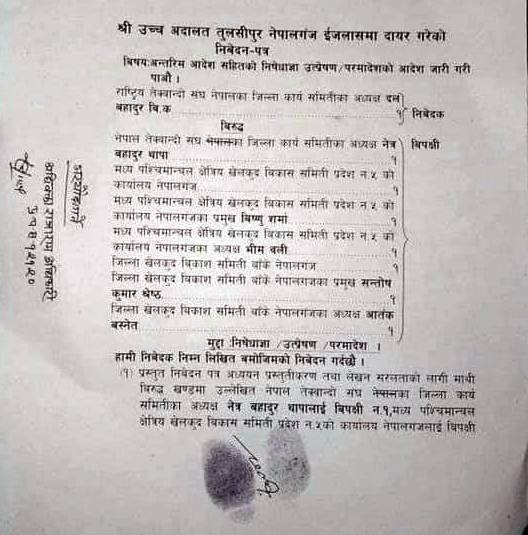 श्री उच्च अदालत तुलसीपुर नेपालगंज ईजलासमा दायर गरेको
निवेदन-पत्र
बिषय:अन्तरिम आदेश सहितको निषेधाज्ञा उत्प्रेषण/परमादेशको आदेश जारी गरी
पाऔं ।
राष्ट्रिय तेक्वान्दो संघ नेपालका जिल्ला कार्य समितीका अध्यक्ष दल
बहादुर बि.क ........ १ निवेदक
बिरुद्ध
नेपाल तेक्वान्दो संघ नेपालका जिल्ला कार्य समितीका अध्यक्ष नेत्र बिपक्षी
बहादुर थापा ........ १
मध्य पश्चिमान्चल क्षेत्रिय खेलकूद बिकास समिती प्रदेश न.५ को
कार्यालय नेपालगन्ज ........ १
मध्य पश्चिमान्चल क्षेत्रिय खेलकूद बिकास समिती प्रदेश न ५ को
कार्यालय नेपालगंजका प्रमुख बिष्णु शर्मा ........ १
मध्य पश्चिमान्चल क्षेत्रिय खेलकूद बिकास समिती प्रदेश न ५ को
कार्यालय नेपालगंजका अध्यक्ष भीम वली ........ १
जिल्ला खेलकूद बिकाश समिती बाँके नेपालगंज ........ १
जिल्ला खेलकूद बिकास समिती बाँके नेपालगंजका प्रमुख सन्तोष
कुमार श्रेष्ठ ........ १
जिल्ला खेलकूद बिकास समिती बाँके नेपालगंजका अध्यक्ष आर्तक
बस्नेत ........ १
मुद्दा :निषेधाज्ञा /उत्प्रेषण /परमादेश ।
हामी निवेदक निम्न लिखित बमोजिमको निवेदन गर्दछौं ।
(१) प्रस्तुत निवेदन पत्र अध्ययन प्रस्तुतीकरण तथा लेखन सरलताको लागी माथी
बिरुद्ध खण्डमा उल्लेखित नेपाल तेक्वान्दो संघ नेपालका जिल्ला कार्य
समितीका अध्यक्ष नेत्र बहादुर थापालाई बिपक्षी न.१,मध्य पश्चिमान्चल
क्षेत्रिय खेलकूद बिकास समिती प्रदेश न.५को कार्यालय नेपालगंजलाई बिपक्षी